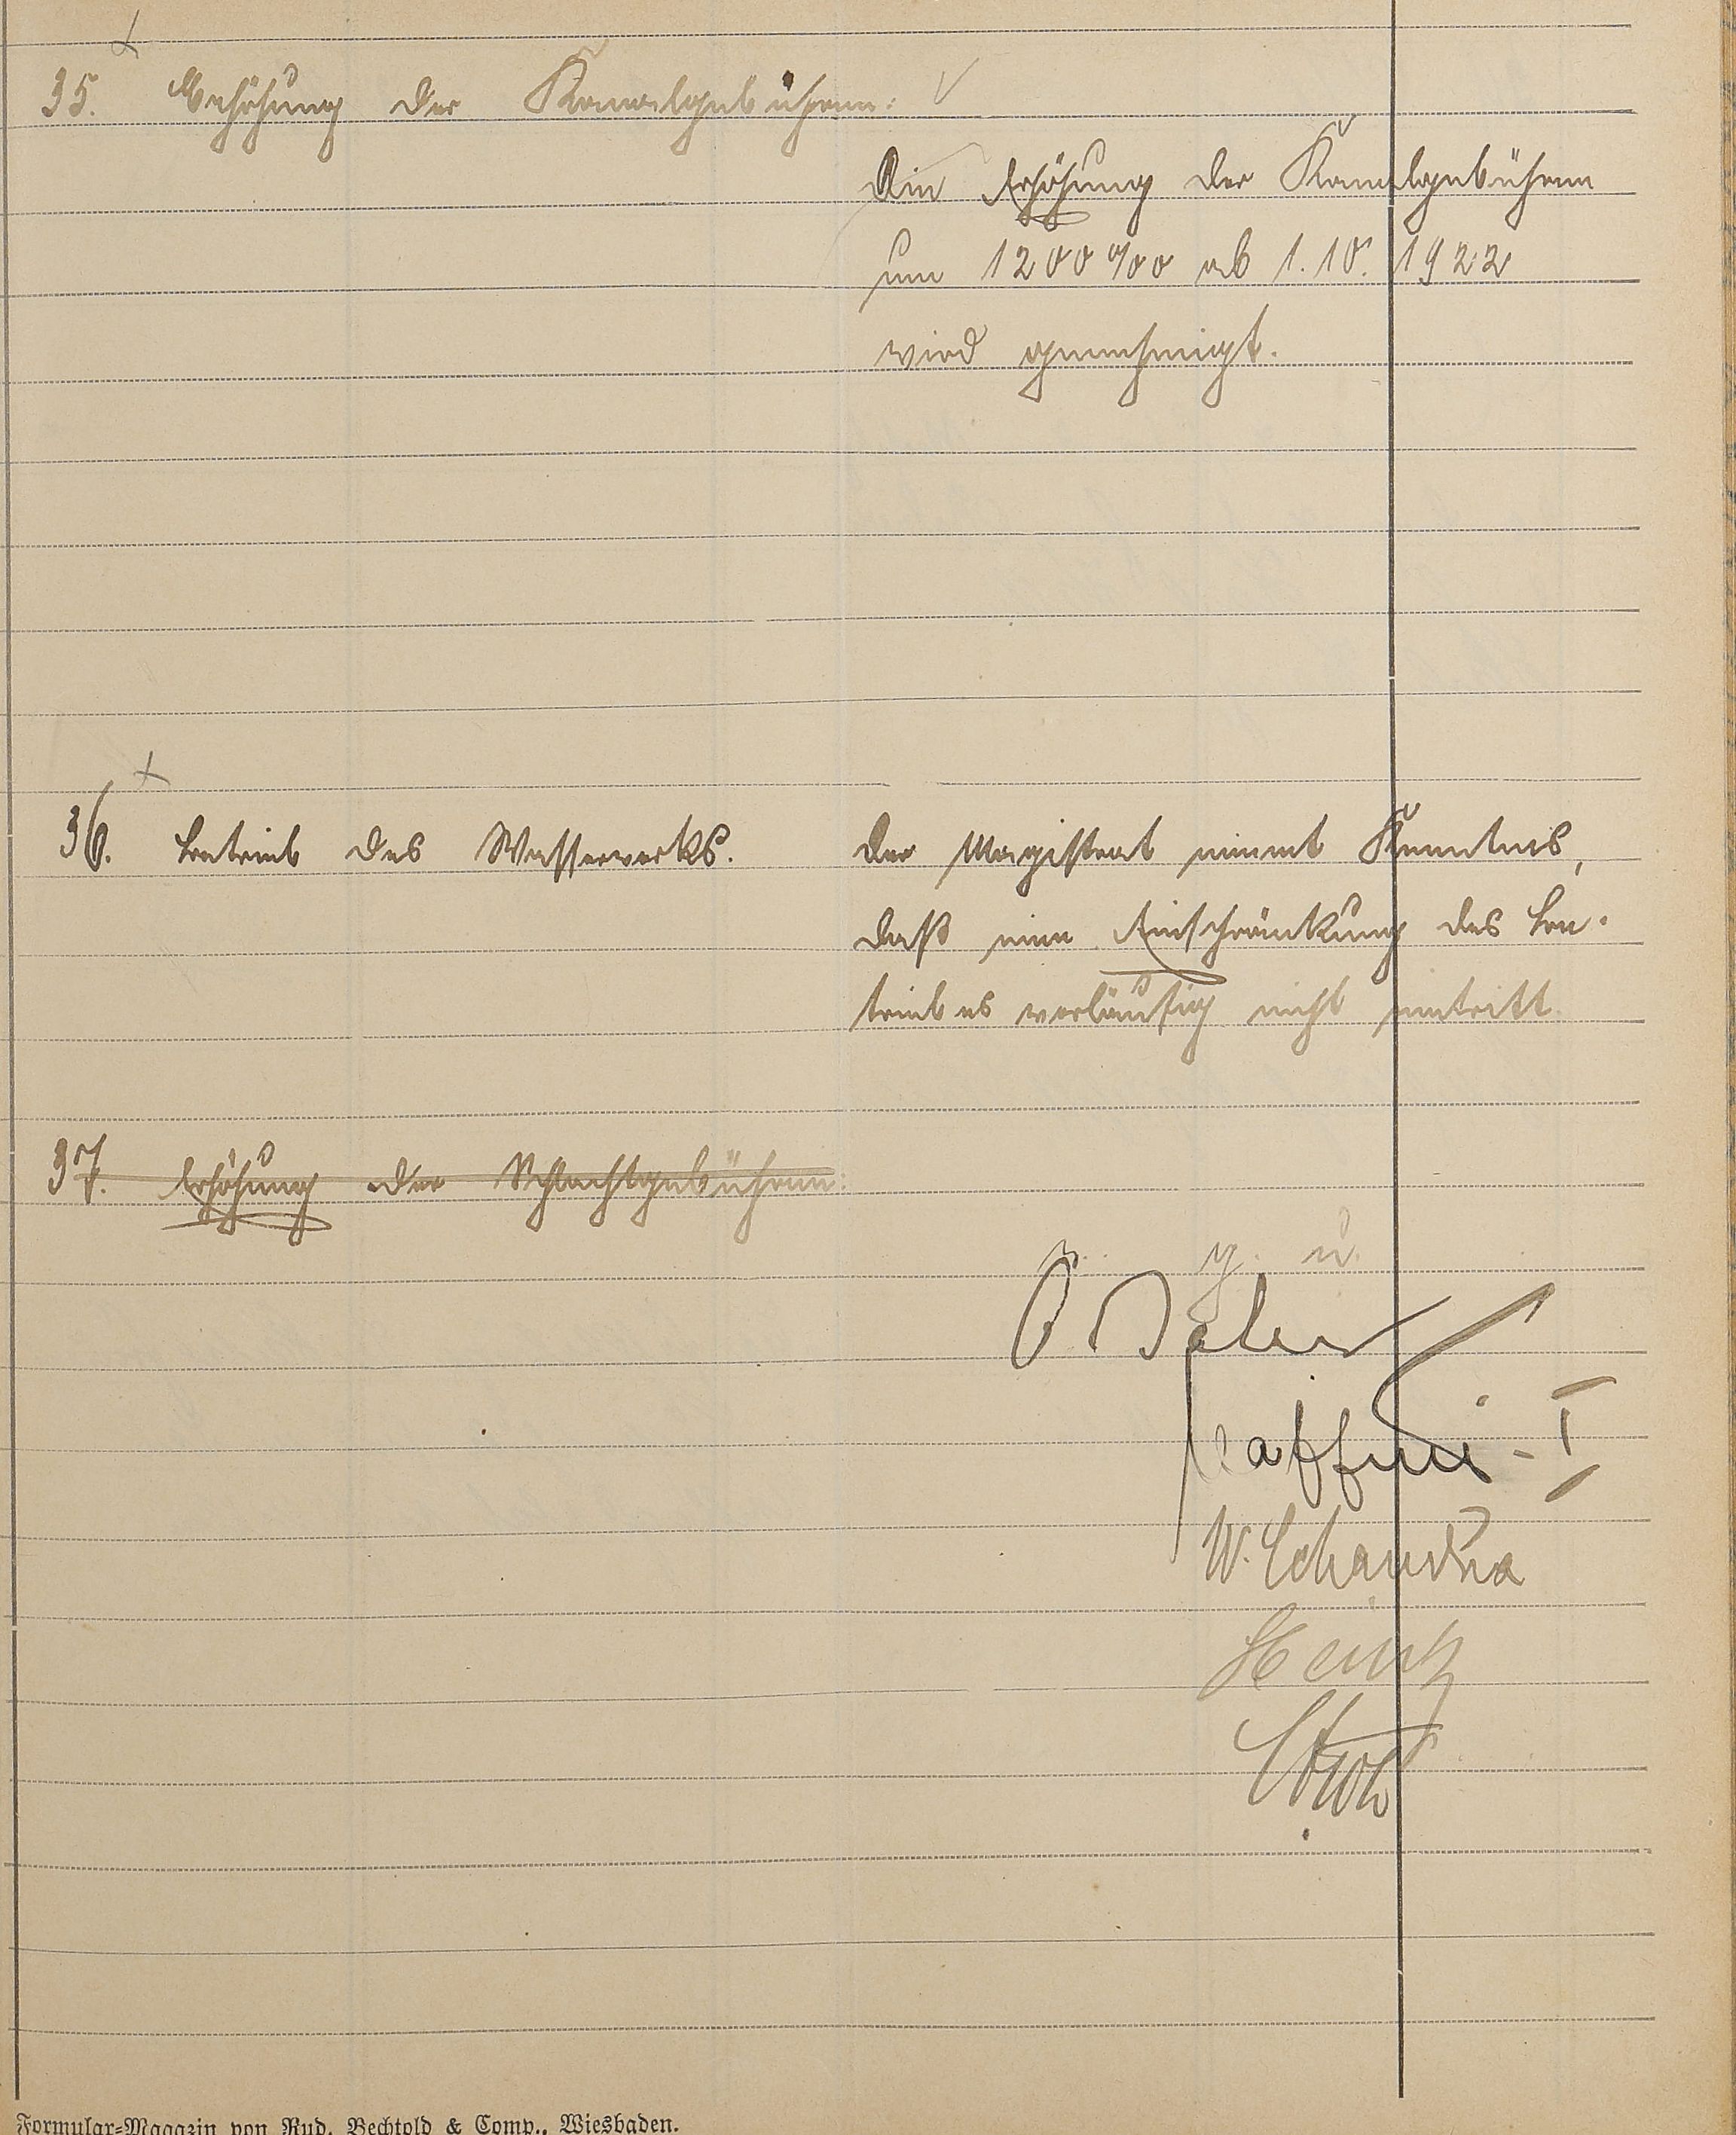 35. Erhöhung der Kanalgebühren:
Die Erhöhung der Kanalgebühren
um 1200 % ab 1.10. 1922
wird genehmigt.
36. Betrieb des Wasserwerks.
Der Magistrat nimmt Kenntnis,
daß eine Einschränkung des Be-
triebes vorläufig nicht eintritt.
37. Erhöhung der Schlachtgebühren:
v. g. u.
W. Schandua
Heinz
Formular-Magazin von Rud. Bechtold & Comp., Wiesbaden.